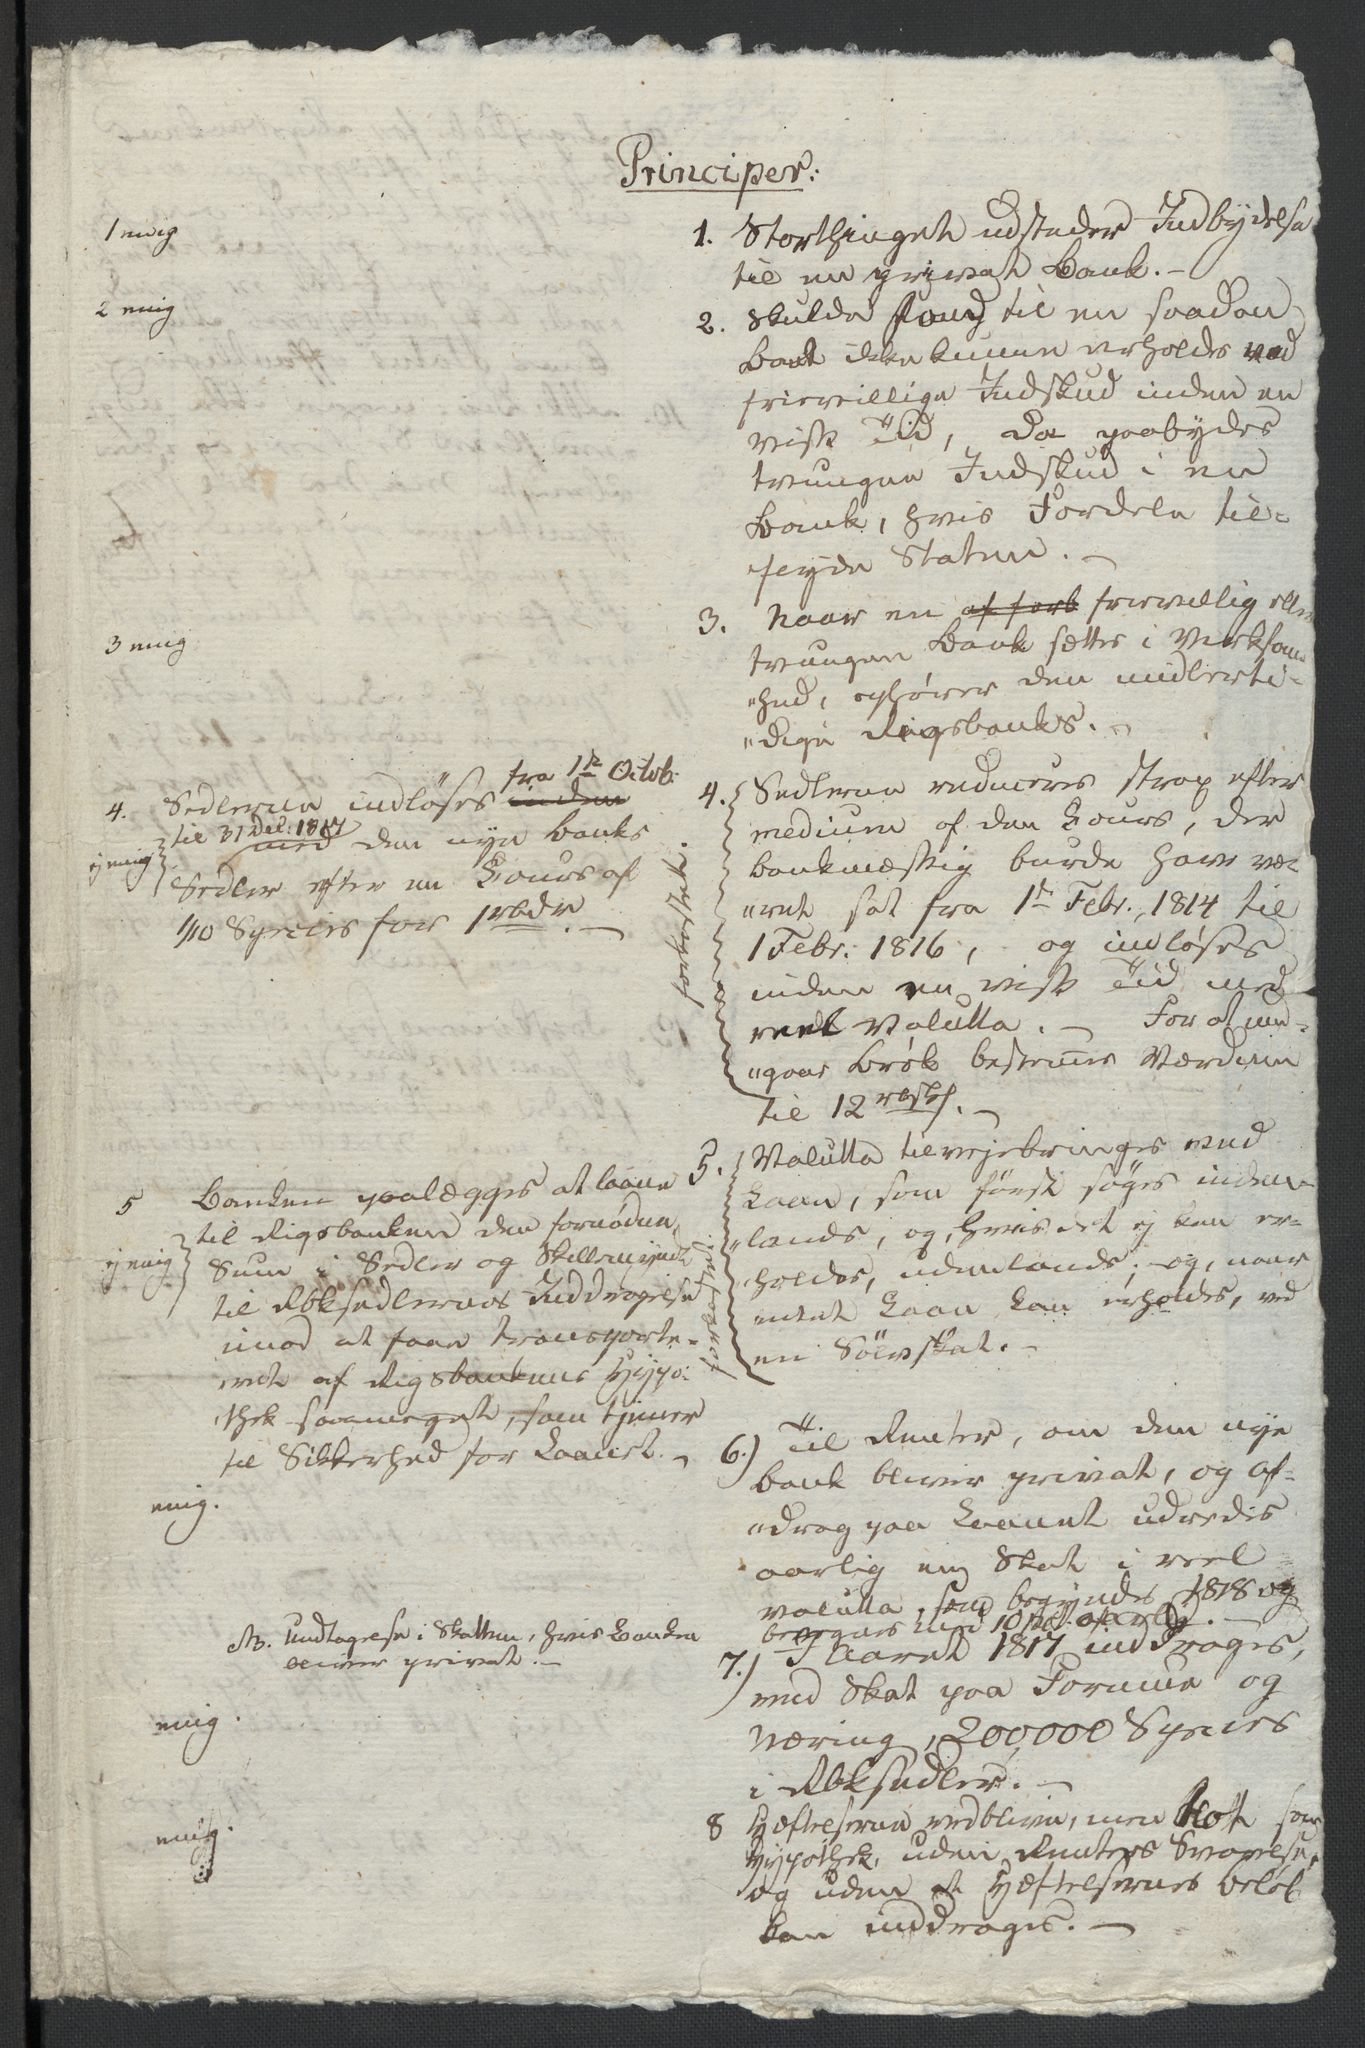 Principer:
1 enig
1. Storthinget udsteder Indbydelse
til en privat Bank. -
2 enig
2. Skulde Fond til en saadan
Bank ikke kunne erholdes ved
frievillige Indskud inden en
vist Tiid, da paabydes
tvungne Indskud i en
Bank, hvis Fordele til-
feyde Staten. -
3 enig
3. Naar en af forb frievillig eller
tvungen Bank sættes i Virksom
"hed, ophører den midlerti-
"dige Rigsbanks. -
4. Sedlerne indløses inden fra 1te Octob:
til 31 Dec: 1817
ej enig
med den nye Banks
Sedler efter en Cours af
1/10 Species for 1 rbdr. -
forkastet.
4. Sedlerne reduceres strax efter
medium af den Cours, der
bankmæssig burde have væ-
"ret sat fra 1te Febr. 1814 til
1 Febr. 1816, og indløses
inden en vist Tiid med
reel Valutta. - For at und-
"gaae Brøk bestemes Værdien
til 12 rbsk. -
5 Banken paalægges at laane
til Rigsbanken den fornødne
ej enig
Sum i Sedler og Skillemynt
til Rbksedlernes Inddragelse
imod at faae transporte-
ret af Rigsbankens Hypo-
thek saameget, som tjener
til Sikkerhed for Laanet. -
forkastet.
5. Valutta tilvejebringes ved
Laan, som først søges inden-
"lands, og, hvis det ej kan er-
holdes, udenlands; og, naar
intet Laan kan erholdes, ved
en Sölvskat. -
enig.
6.) Til Renter, om den nye
Bank bliver privat, og af-
"drag paa Laanet udredes
aarlig en Skat i reel
valutta, som begyndes 1818 og
beregnes med 10 pCt. aarlig. -
NB. Undtagelse i Skatten, hvis Banken
bliver privat. -
enig.
7.) I Aaret 1817 inddrages,
ved Skat paa Formue og
Næring, 200,000 Species
i Rbksedler. -
enig.
8 Hæftelserne vedblive, men blot som
Hypothek, uden Renters Svarelse,
og uden at Hæftelsernes Beløb
kan inddrages. -